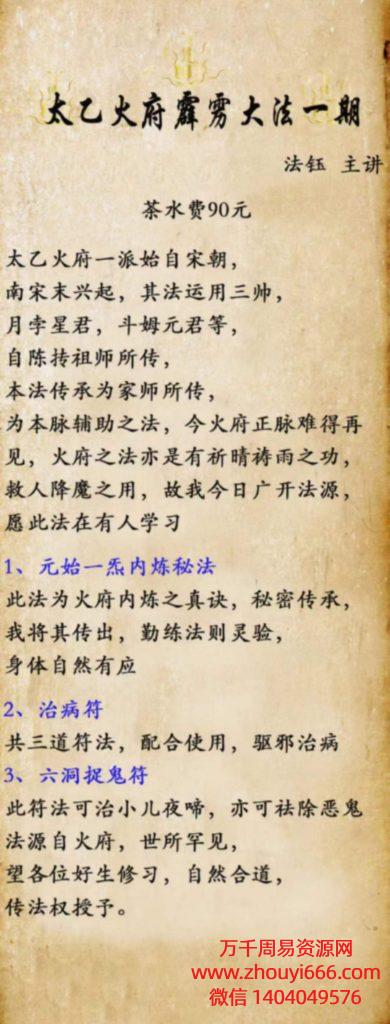 太乙火府霹雳大法一期
法钰 主讲
茶水费90元
太乙火府一派始自宋朝，
南宋末兴起，其法运用三帅，
月孛星君，斗姆元君等，
自陈抟祖师所传，
本法传承为家师所传，
为本脉辅助之法，今火府正脉难得再
见，火府之法亦是有祈晴祷雨之功，
救人降魔之用，故我今日广开法源，
愿此法在有人学习
1、元始一炁内炼秘法
此法为火府内炼之真诀，秘密传承，
我将其传出，勤练法则灵验，
身体自然有应
2、治病符
共三道符法，配合使用，驱邪治病
3、六洞捉鬼符
此符法可治小儿夜啼，亦可祛除恶鬼
法源自火府，世所罕见，
望各位好生修习，自然合道，
传法权授予。
万千周易资源网
www.zhouyi666.com
微信 1404049576